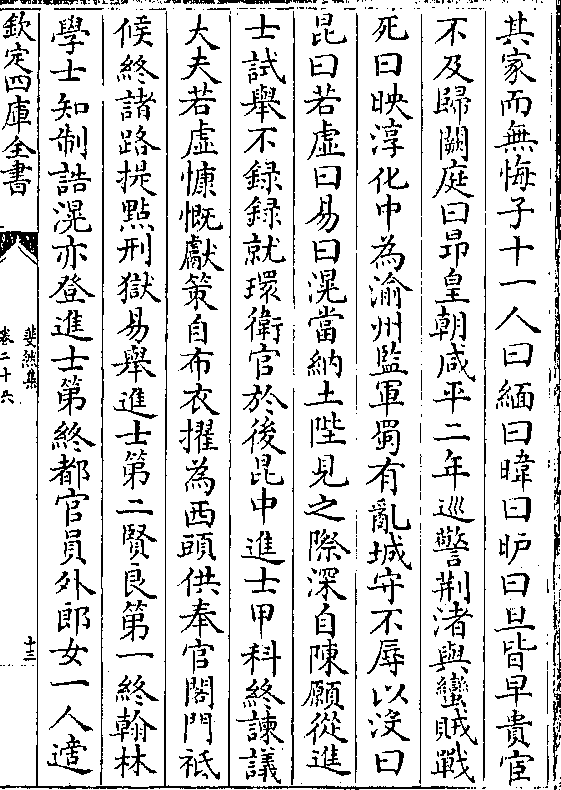 其家而無悔子十一人曰緬曰暐曰昈曰旦皆早貴宦
不及歸闕庭曰昻皇朝咸平二年巡警荆渚與蠻賊戰
死曰映淳化中為渝州監軍蜀有亂城守不辱以没曰
昆曰若虚曰易曰滉當納土陛見之際深自陳願從進
士試舉不録録就環衛官於後昆中進士甲科終諫議
大夫若虚慷慨獻策自布衣擢為西頭供奉官閤門祗
候終諸路提點刑獄易舉進士第二賢良第一終翰林
學士知制誥滉亦登進士第終都官員外郎女一人適
欽定四庫全書
斐然集
卷二十六
十三